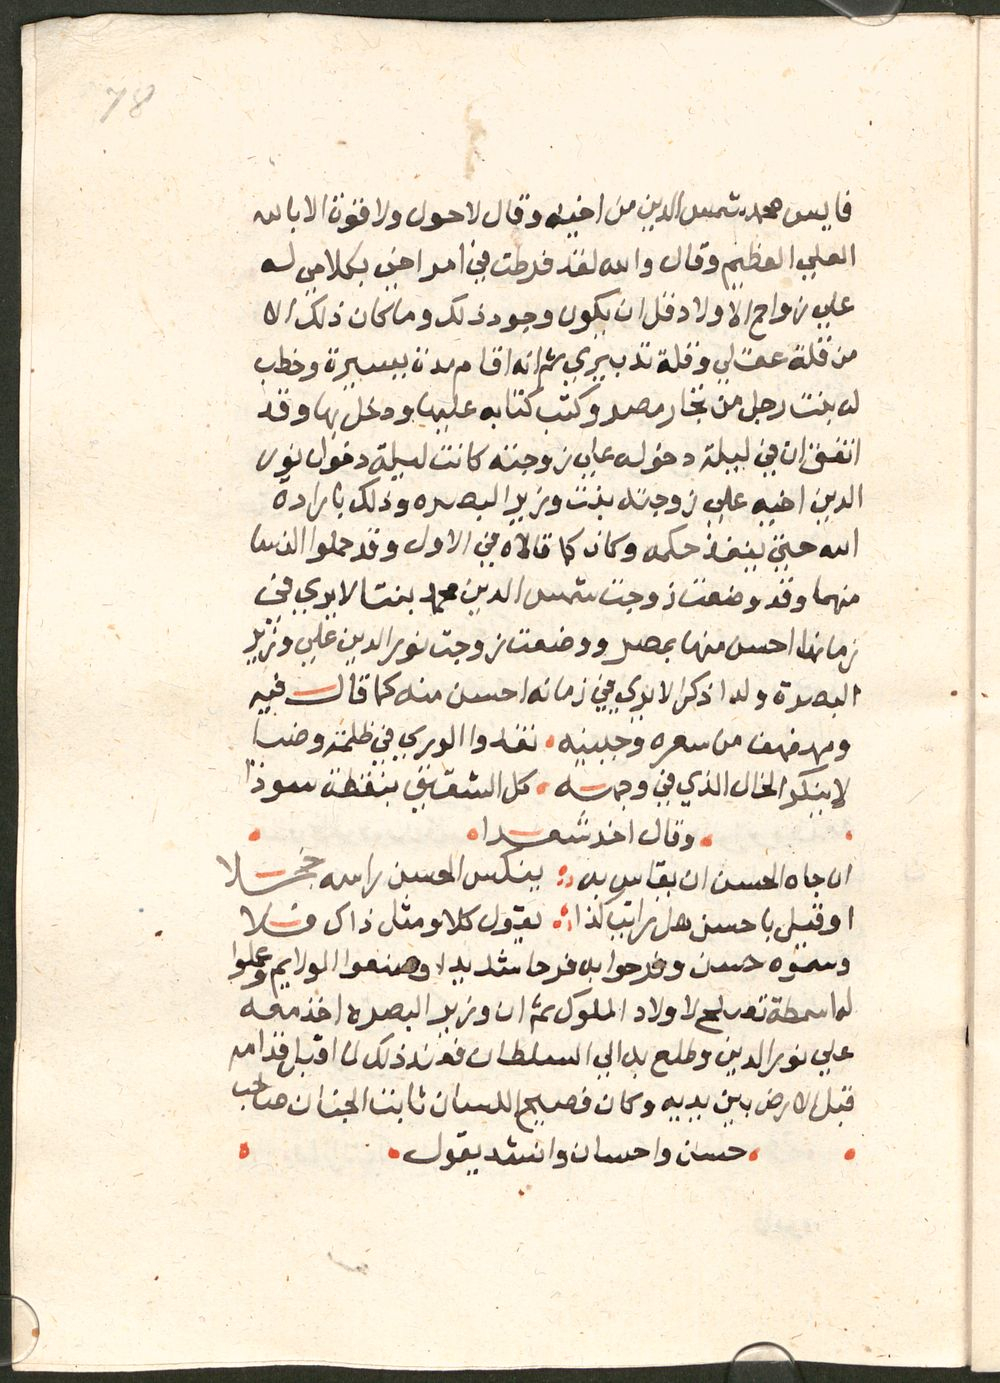 78
فايس محمد شمس الدين من اخيه وقال لاحول ولا قوة الا بالله
العلي العظيم وقال والله لقد فرطت في امر اخي بكلامي له
علي زواج الاولاد قبل ان يكون وجود ذلك وما كان ذلك الا
من قلة عقلي وقلة تدبيري ثم انه اقام مدة يسيرة وخطب
له بنت رجل من تجار مصر وكتب كتابه عليها ودخل بها وقد
اتفق ان في ليلة دخوله علي زوجته كانت ليلة دخول نور
الدين اخيه علي زوجته بنت وزير البصره وذلك بارادة
الله حتي ينفذ حكمه وكان كما قالاه في الاول وقد حملوا النسا
منهما وقد وضعت زوجت شمس الدين محمد بنتا لايري في
زمانها احسن منها بمصر ووضعت زوجت نور الدين علي وزير
البصرة ولدا ذكرا لايري في زمانه احسن منه كما قال فيه
ومهفهف من شعره وجبينه تغدوا الوري في ظلمة وضيا
لا ينكر الخال الذي في وجهه كل الشقيق بنقطة سودا
وقال اخر شعرا
ان جاه الحسن ان يقاس به ينكس الحسن راسه خجلا
او قيل يا حسن هل رايت كذا يقول كلا ومثل ذاك فلا
وسموه حسن وفرحوا به فرحا شديدا وصنعوا الولايم وعملوا
له اسمطة تصلح لاولاد الملوك ثم ان وزير البصره اخذ معه
علي نور الدين وطلع به الي السلطان فعند ذلك لما اقبل قدامه
قبل الارض بين يديه وكان فصيح اللسان ثابت الجنان صاحب
حسن واحسان وانشد يقول